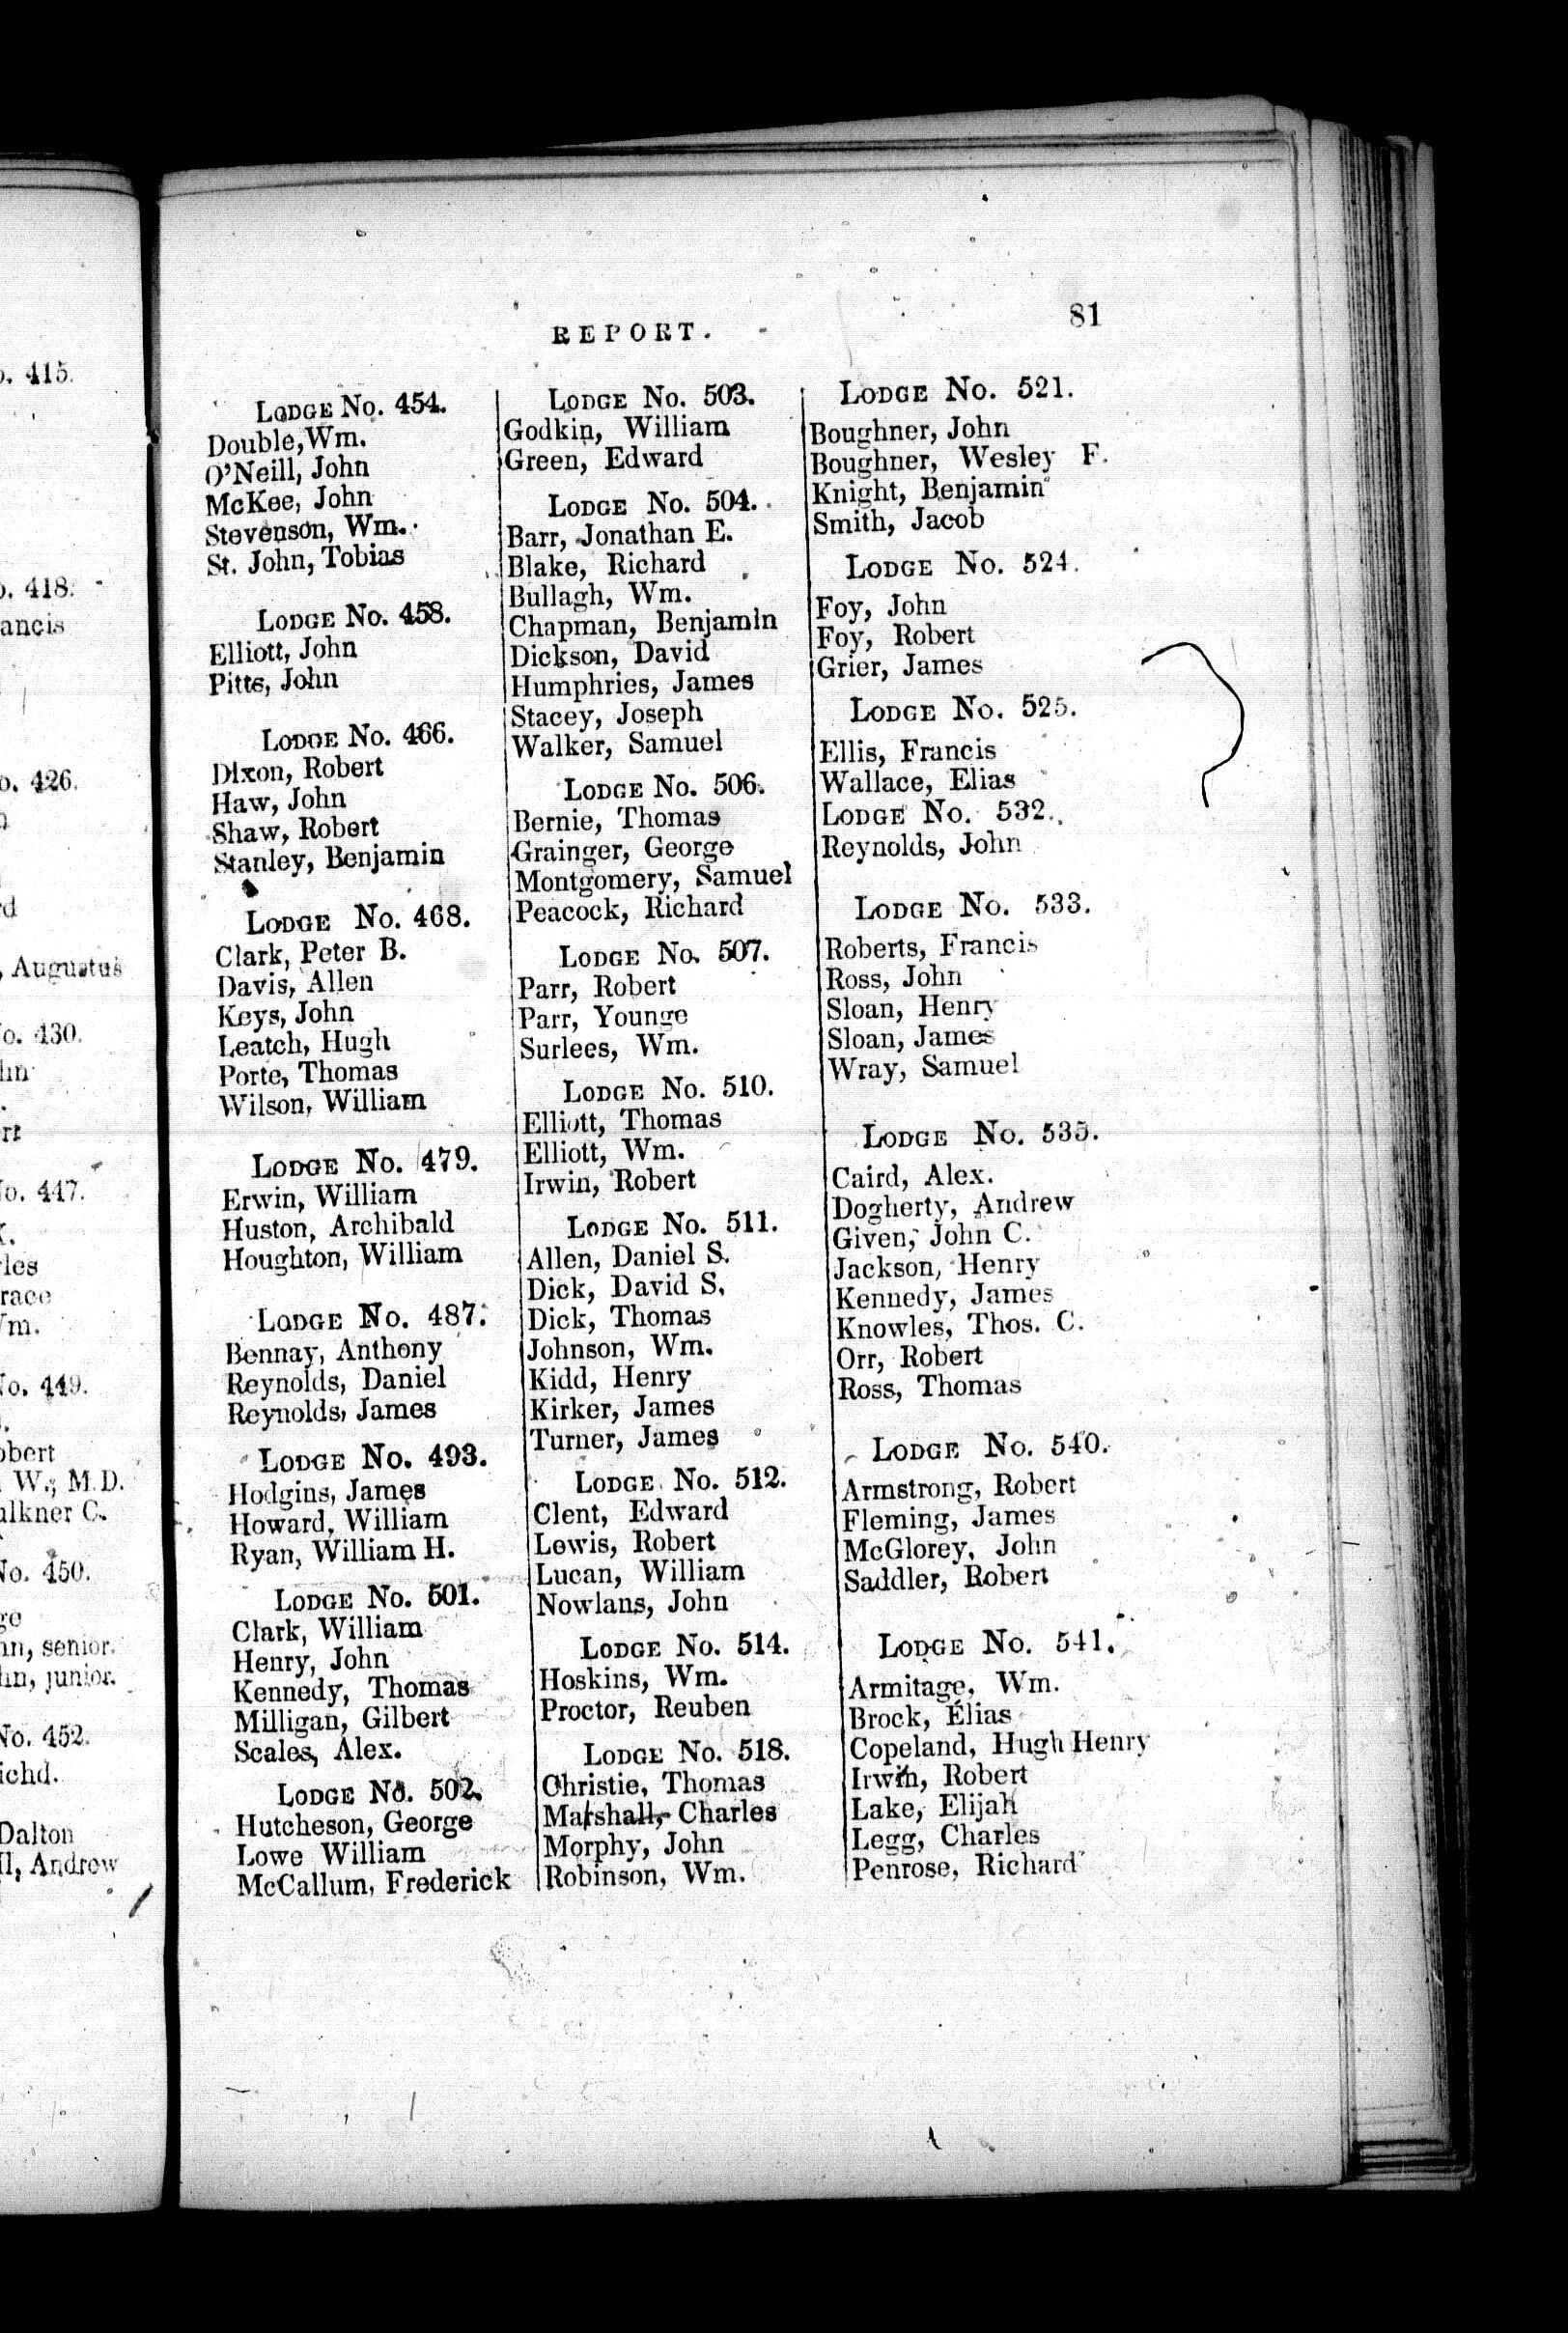 o. 415.
o. 418.
ancis
o. 426.
rd
, Augustus
o. 430.
hn
rt
o. 447.
les
race
m.
o. 449.
obert
W., M.D.
ulkner C.
No. 450.
ge
hn, senior.
hn, junior.
No. 452.
ichd.
Dalton
ll, Andrew
REPORT.
81
LODGE No. 454.
Double, Wm.
O'Neill, John
McKee, John
Stevenson, Wm.
St. John, Tobias
LODGE No. 458.
Elliott, John
Pitts, John
LODGE No. 466.
Dixon, Robert
Haw, John
Shaw, Robert
Stanley, Benjamin
LODGE No. 468.
Clark, Peter B.
Davis, Allen
Keys, John
Leatch, Hugh
Porte, Thomas
Wilson, William
LODGE No. 479.
Erwin, William
Huston, Archibald
Houghton, William
LODGE No. 487.
Bennay, Anthony
Reynolds, Daniel
Reynolds, James
LODGE No. 493.
Hodgins, James
Howard, William
Ryan, William H.
LODGE No. 501.
Clark, William
Henry, John
Kennedy, Thomas
Milligan, Gilbert
Scales, Alex.
LODGE No. 502.
Hutcheson, George
Lowe William
McCallum, Frederick
LODGE No. 503.
Godkin, William
Green, Edward
LODGE No. 504.
Barr, Jonathan E.
Blake, Richard
Bullagh, Wm.
Chapman, Benjamin
Dickson, David
Humphries, James
Stacey, Joseph
Walker, Samuel
LODGE No. 506.
Bernie, Thomas
Grainger, George
Montgomery, Samuel
Peacock, Richard
LODGE No. 507.
Parr, Robert
Parr, Younge
Surlees, Wm.
LODGE No. 510.
Elliott, Thomas
Elliott, Wm.
Irwin, Robert
LODGE No. 511.
Allen, Daniel S.
Dick, David S.
Dick, Thomas
Johnson, Wm.
Kidd, Henry
Kirker, James
Turner, James
LODGE No. 512.
Clent, Edward
Lewis, Robert
Lucan, William
Nowlans, John
LODGE No. 514.
Hoskins, Wm.
Proctor, Reuben
LODGE No. 518.
Christie, Thomas
Marshall, Charles
Morphy, John
Robinson, Wm.
LODGE No. 521.
Boughner, John
Boughner, Wesley F.
Knight, Benjamin
Smith, Jacob
LODGE No. 524.
Foy, John
Foy, Robert
Grier, James
LODGE No. 525.
Ellis, Francis
Wallace, Elias
LODGE No. 532.
Reynolds, John
LODGE No. 533.
Roberts, Francis
Ross, John
Sloan, Henry
Sloan, James
Wray, Samuel
LODGE No. 535.
Caird, Alex.
Dogherty, Andrew
Given, John C.
Jackson, Henry
Kennedy, James
Knowles, Thos. C.
Orr, Robert
Ross, Thomas
LODGE No. 540.
Armstrong, Robert
Fleming, James
McGlorey, John
Saddler, Robert
LODGE No. 541.
Armitage, Wm.
Brock, Elias
Copeland, Hugh Henry
Irwin, Robert
Lake, Elijah
Legg, Charles
Penrose, Richard